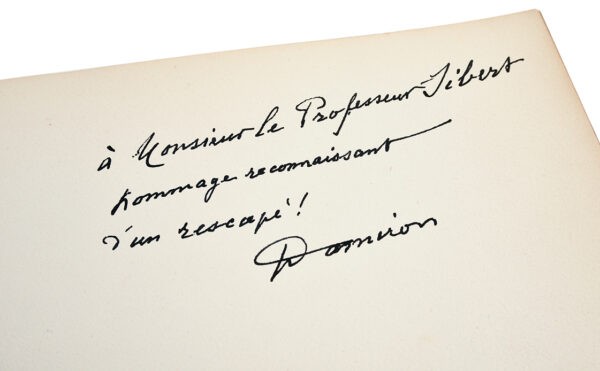 à Monsieur le Professeur Sébert
hommage reconnaissant
d'un rescapé !
Damiron